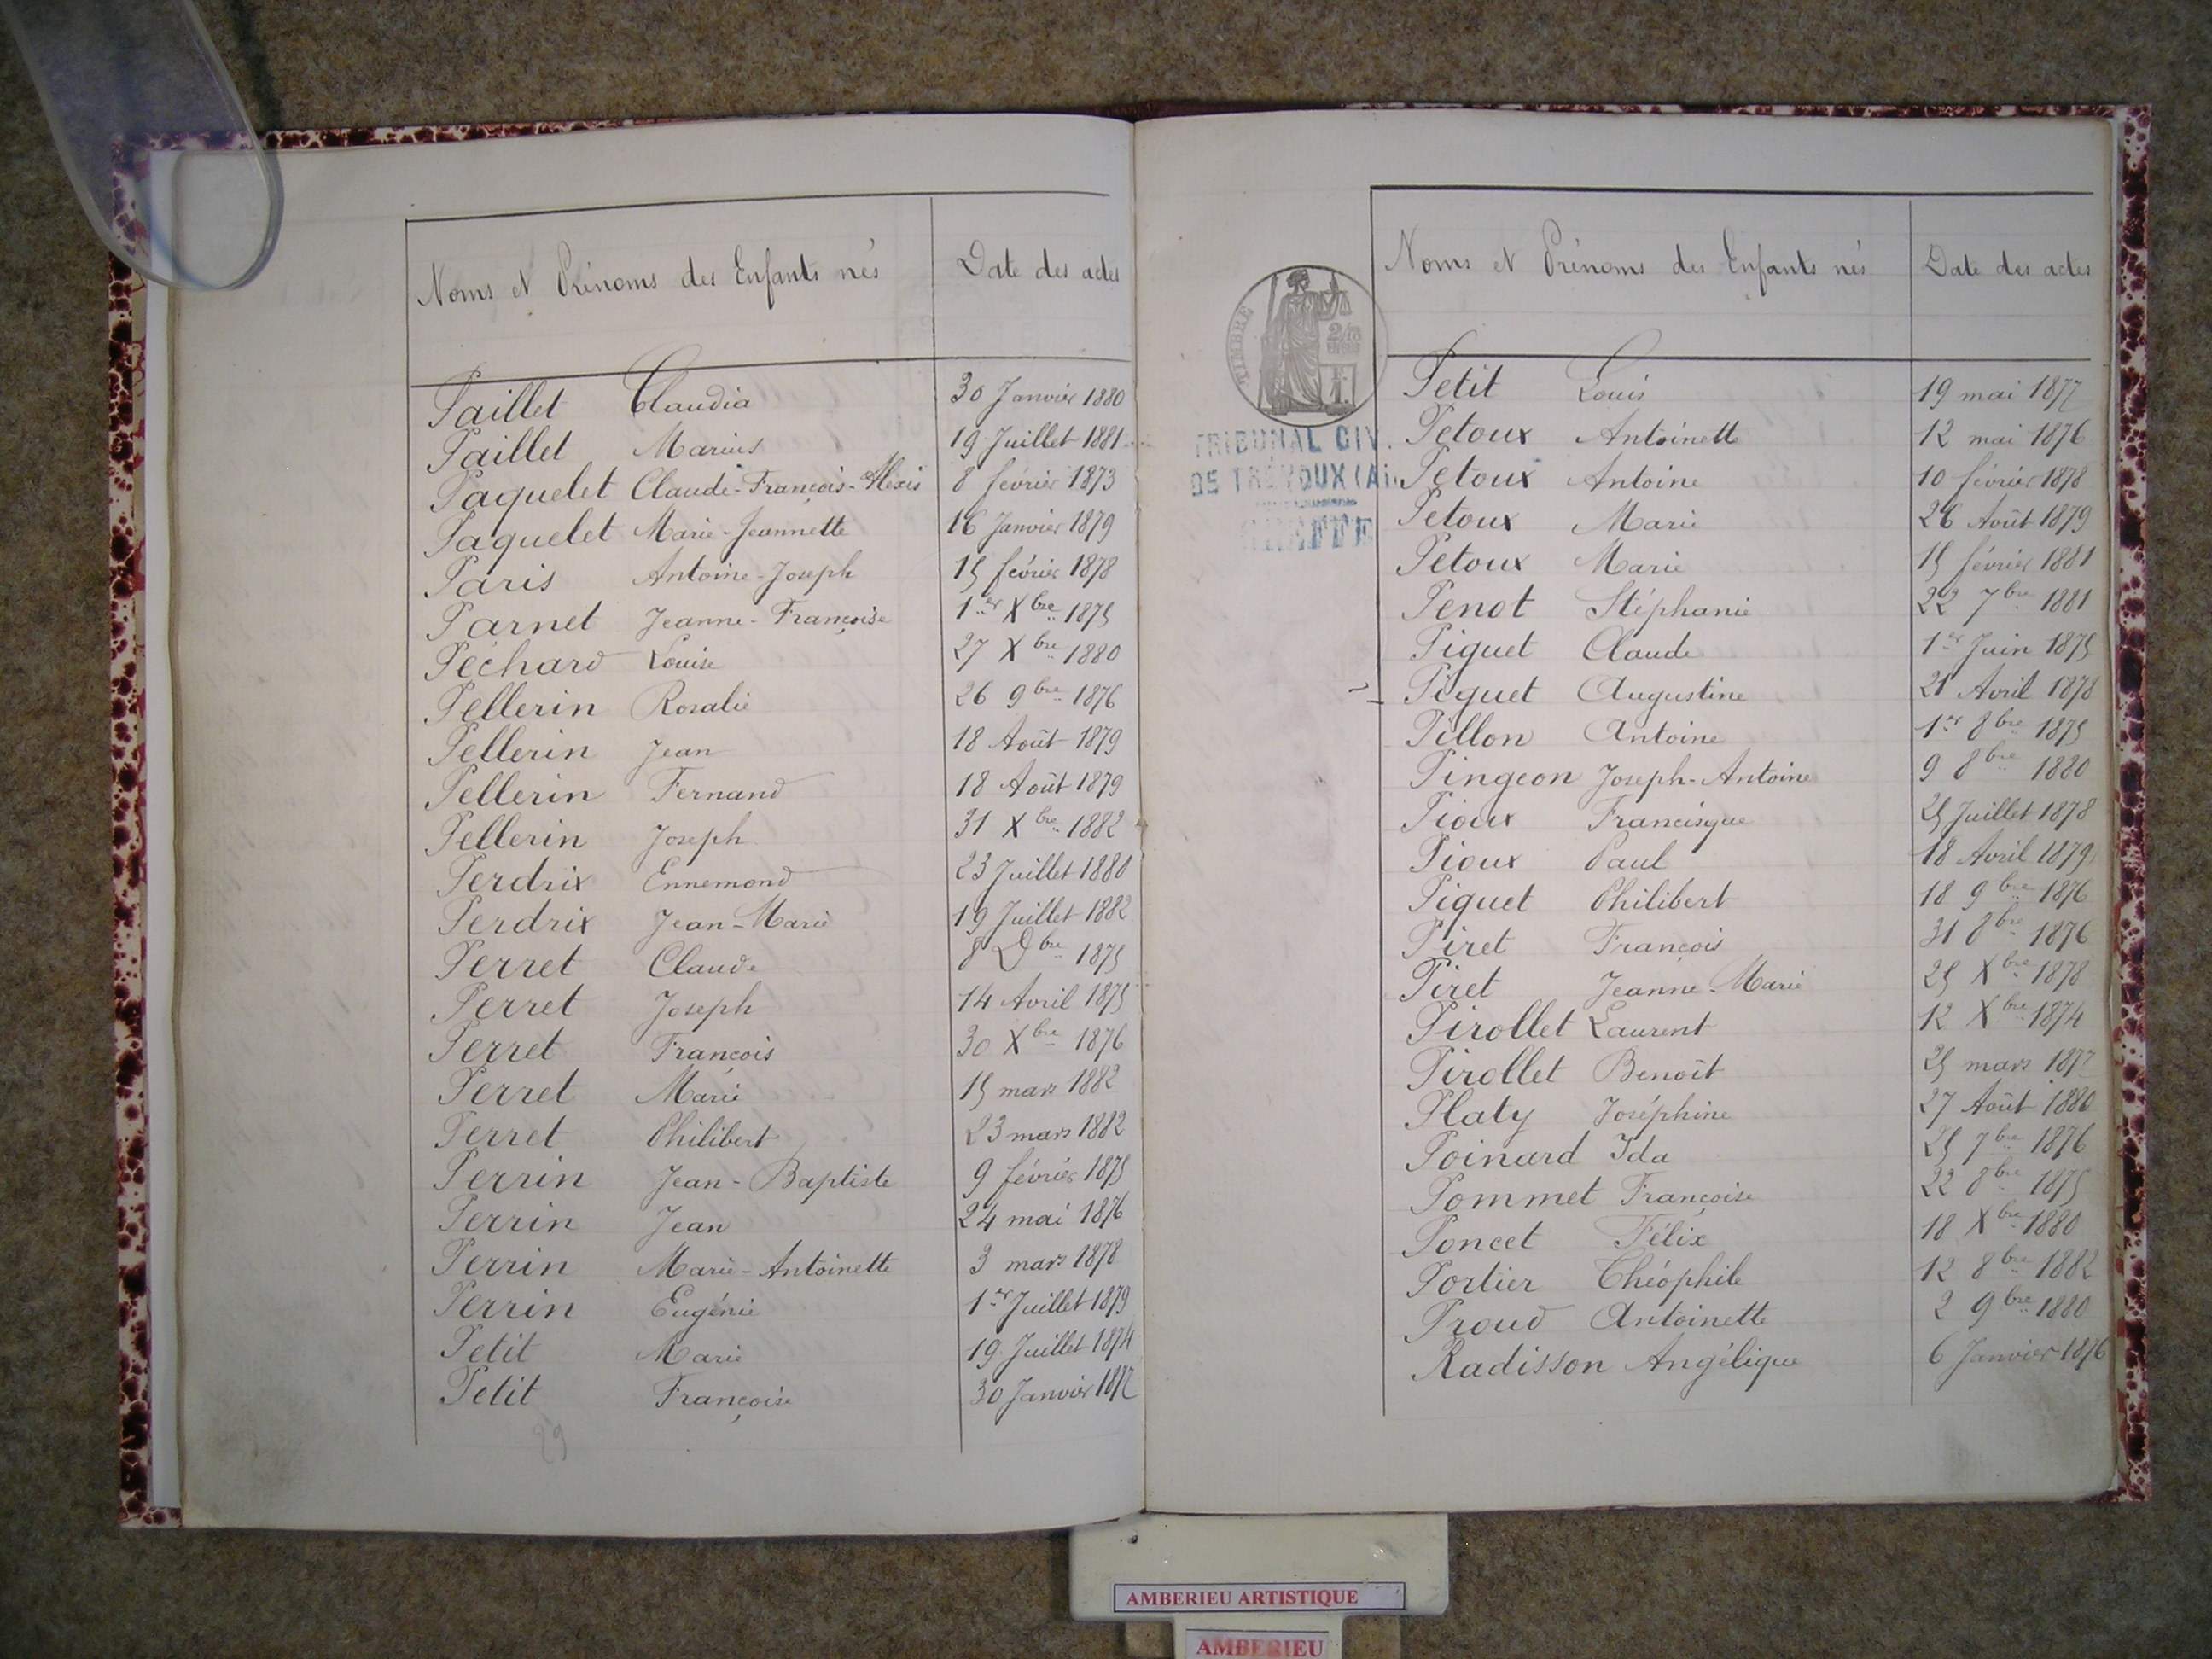 Noms et Prénoms des Enfants nés Date des actes
Paillet Claudia 30 Janvier 1880
Paillet Marius 19 Juillet 1881
Paquelet Claude-François-Alexis 8 février 1873
Paquelet Marie-Jeannette 16 Janvier 1879
Paris Antoine-Joseph 15 février 1878
Parnet Jeanne-Françoise 1er Xbre 1875
Péchard Louise 27 Xbre 1880
Pellerin Rosalie 26 9bre 1876
Pellerin Jean 18 Août 1879
Pellerin Fernand 18 Août 1879
Pellerin Joseph 31 Xbre 1882
Perdrix Ennemond 23 Juillet 1880
Perdrix Jean-Marie 19 Juillet 1882
Perret Claude 8 bre 1875
Perret Joseph 14 Avril 1875
Perret François 30 Xbre 1876
Perret Marie 15 mars 1882
Perret Philibert 23 mars 1882
Perrin Jean-Baptiste 9 février 1875
Perrin Jean 24 mai 1876
Perrin Marie-Antoinette 3 mars 1878
Perrin Eugénie 1er Juillet 1879
Petit Marie 19 Juillet 1874
Petit Françoise 30 Janvier
29
Noms et Prénoms des Enfants nés Date des actes
TIMBRE
2/10
TRIBUNAL CIV.
DE TRÉVOUX (Ai
GREFFE
Petit Louis 19 mai 1877
Petoux Antoinette 12 mai 1876
Petoux Antoine 10 février 1878
Petoux Marie 26 Août 1879
Petoux Marie 15 février 1881
Penot Stéphanie 22 7bre 1881
Piguet Claude 1er Juin 1875
Piguet Augustine 21 Avril 1878
Pillon Antoine 1er 8bre 1875
Pingeon Joseph-Antoine 9 8bre 1880
Pioux Francisque 25 Juillet 1878
Pioux Paul 18 Avril 1879
Piguet Philibert 18 9bre 1876
Piret François 31 8bre 1876
Piret Jeanne-Marie 25 Xbre 1878
Pirollet Laurent 12 Xbre 1874
Pirollet Benoît 25 mars 1877
Platy Joséphine 27 Août 1880
Poinard Ida 25 7bre 1876
Pommet Françoise 22 8bre 1875
Poncet Félix 18 Xbre 1880
Portier Théophile 12 8bre 1882
Proud Antoinette 2 9bre 1880
Radisson Angélique 6 Janvier 1876
AMBERIEU ARTISTIQUE
AMBERIEU